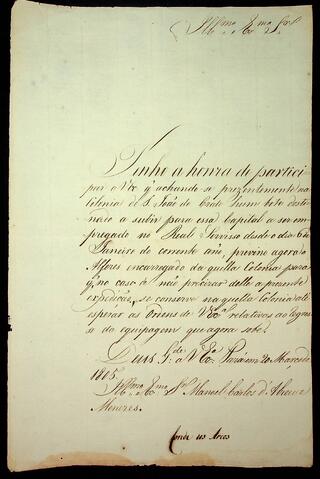 Ill.mo e Ex.mo Snr.
Tenho a honra de partici
par a V.Ex.a q' achando-se prezentemente na
Colonia de S. João do Crato hum bote desti
nado a subir para essa Capital a ser em
pregado no Real Servisso desde o dia 6 de
Janeiro do corrente anno, previno agora o
Alferes encarregado da quella Colonia para
q', no caso de não precizar delle a presente
expedição, se conserve na quella Colonia até
esperar as Ordens de V.Ex.a relativas ao regres
so da equipagem que agora sobe.
Deus G.de a V.Ex.a Pará em 20 Março de
1805
Ill.mo e Ex.mo Snr. Manoel Carlos d'Abreu e
Menezes.
Conde dos Arcos